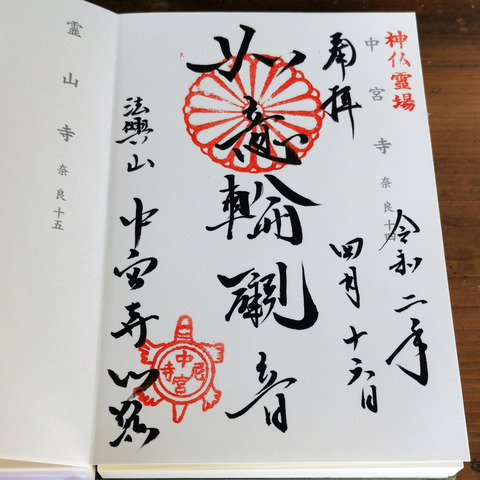 神仏霊場
中宮寺 奈良十四
奉拝
令和二年
四月十六日
如意輪觀音
法興山
中宮寺門跡
中宮尼寺
霊山寺 奈良十五